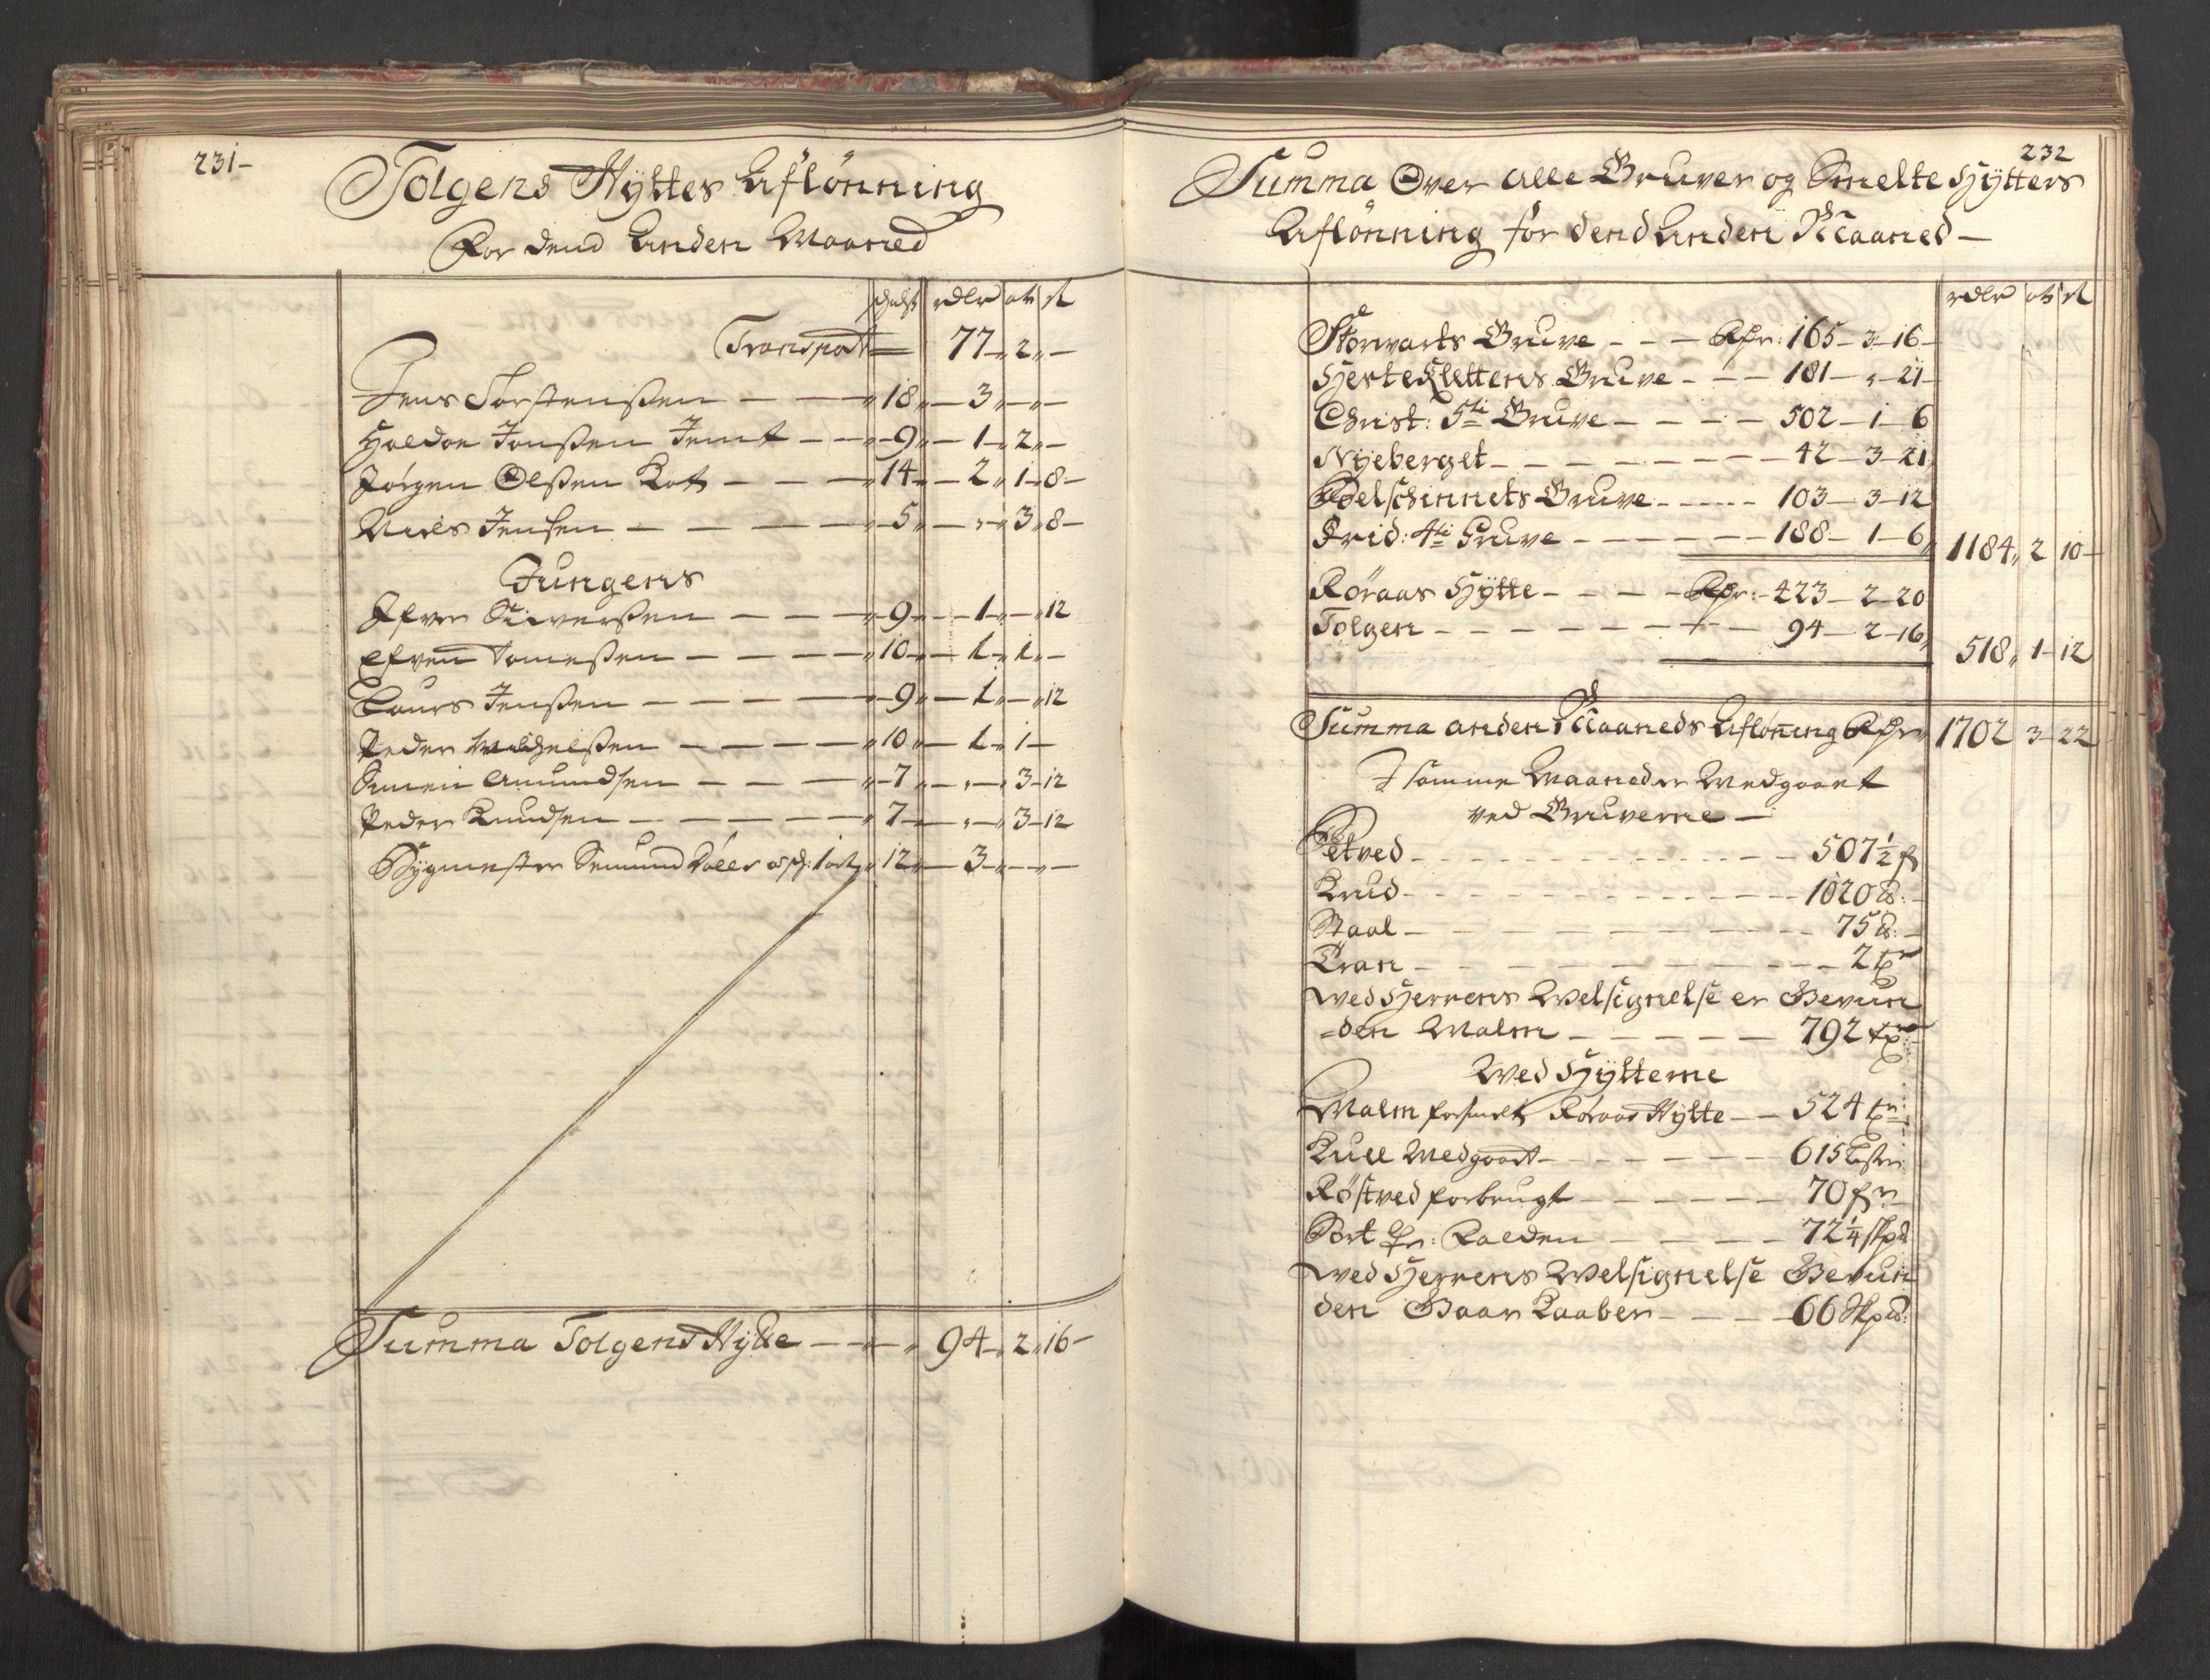 231-
Tolgens Hyttes Aflönning
For dend Anden Maaned
rdlr ort s
Transport 77 " 2 " -
Jens Torstensßen - - " 18 " - 3 " - " -
Haldor Jonßen Jemt - - " 9 " - 1 " 2 " -
Jörgen Olßen Kot - - - " 14 " - 2 " 1 - 8 -
Niels Jensen - - - - " 5 " - " - 3 " 8 -
Jungens
Ifver Siversßen - - - " 9 " - 1 - " 12
Efven Tomesßen - - - " 10 " - 1 " 1 " -
Laurs Jensßen - - - - " 9 " - 1 " - " 12
Peder Michelsßen - - - - " 10 " - 1 " 1 -
Simen Amundsen - - - " 7 " - " - " 3 - 12
Peder Knudsen - - - - " 7 " - " - " 3 - 12
Bygmester Semund 1 ort " 12 " - 3 " - " -
Summa Tolgens Hytte - - " 94 " 2 " 16 -
232
Summa Over alle Gruver og Smelte Hytters
Aflönning for dend Anden Maaned -
rdlr ort s
Storwarts Gruve - - - Rdr: 165 - 3 - 16 -
Hesteklettens Gruve - - - 181 - " - 21 -
Christ: 5ti Gruve - - - - 502 - 1 - 6
Nyeberget - - - - - - 42 - 3 - 21
Gruve - - - - 103 - 3 - 12
Frid: 4ti Gruve - - - - - 188 - 1 - 6 " 1184 " 2 10 -
Röraas Hytte - - - - Rdr: 423 - 2 - 20
Tolgen - - - - - - - 94 - 2 - 16 " 518 " 1 - 12
Summa anden Maaneds Aflönning Rdr 1702 3 - 22
I samme Maaneder Medgaaet
ved Gruverne -
Setved - - - - - - - - - 507 1/2 f
Krud - - - - - - - - - 1020 ℔: -
Staal - - - - - - - - - 75 ℔: -
Tran - - - - - - - - - 2 tr
wed Herrens Welsignelse er Bevun
=den Malm - - - - - 792 tr
Wed Hytterne
Malm forsmelt Röraas Hytte - - 524 tr:
Kull Medgaaet - - - - - 615 Lster
Röstved forbrugt - - - - - 70 fn
Sort - - - - 72 1/4 skp℔
wed Herrens Welsignelse Bevun
den Gaar Kaaber - - - - 66 Skp℔: